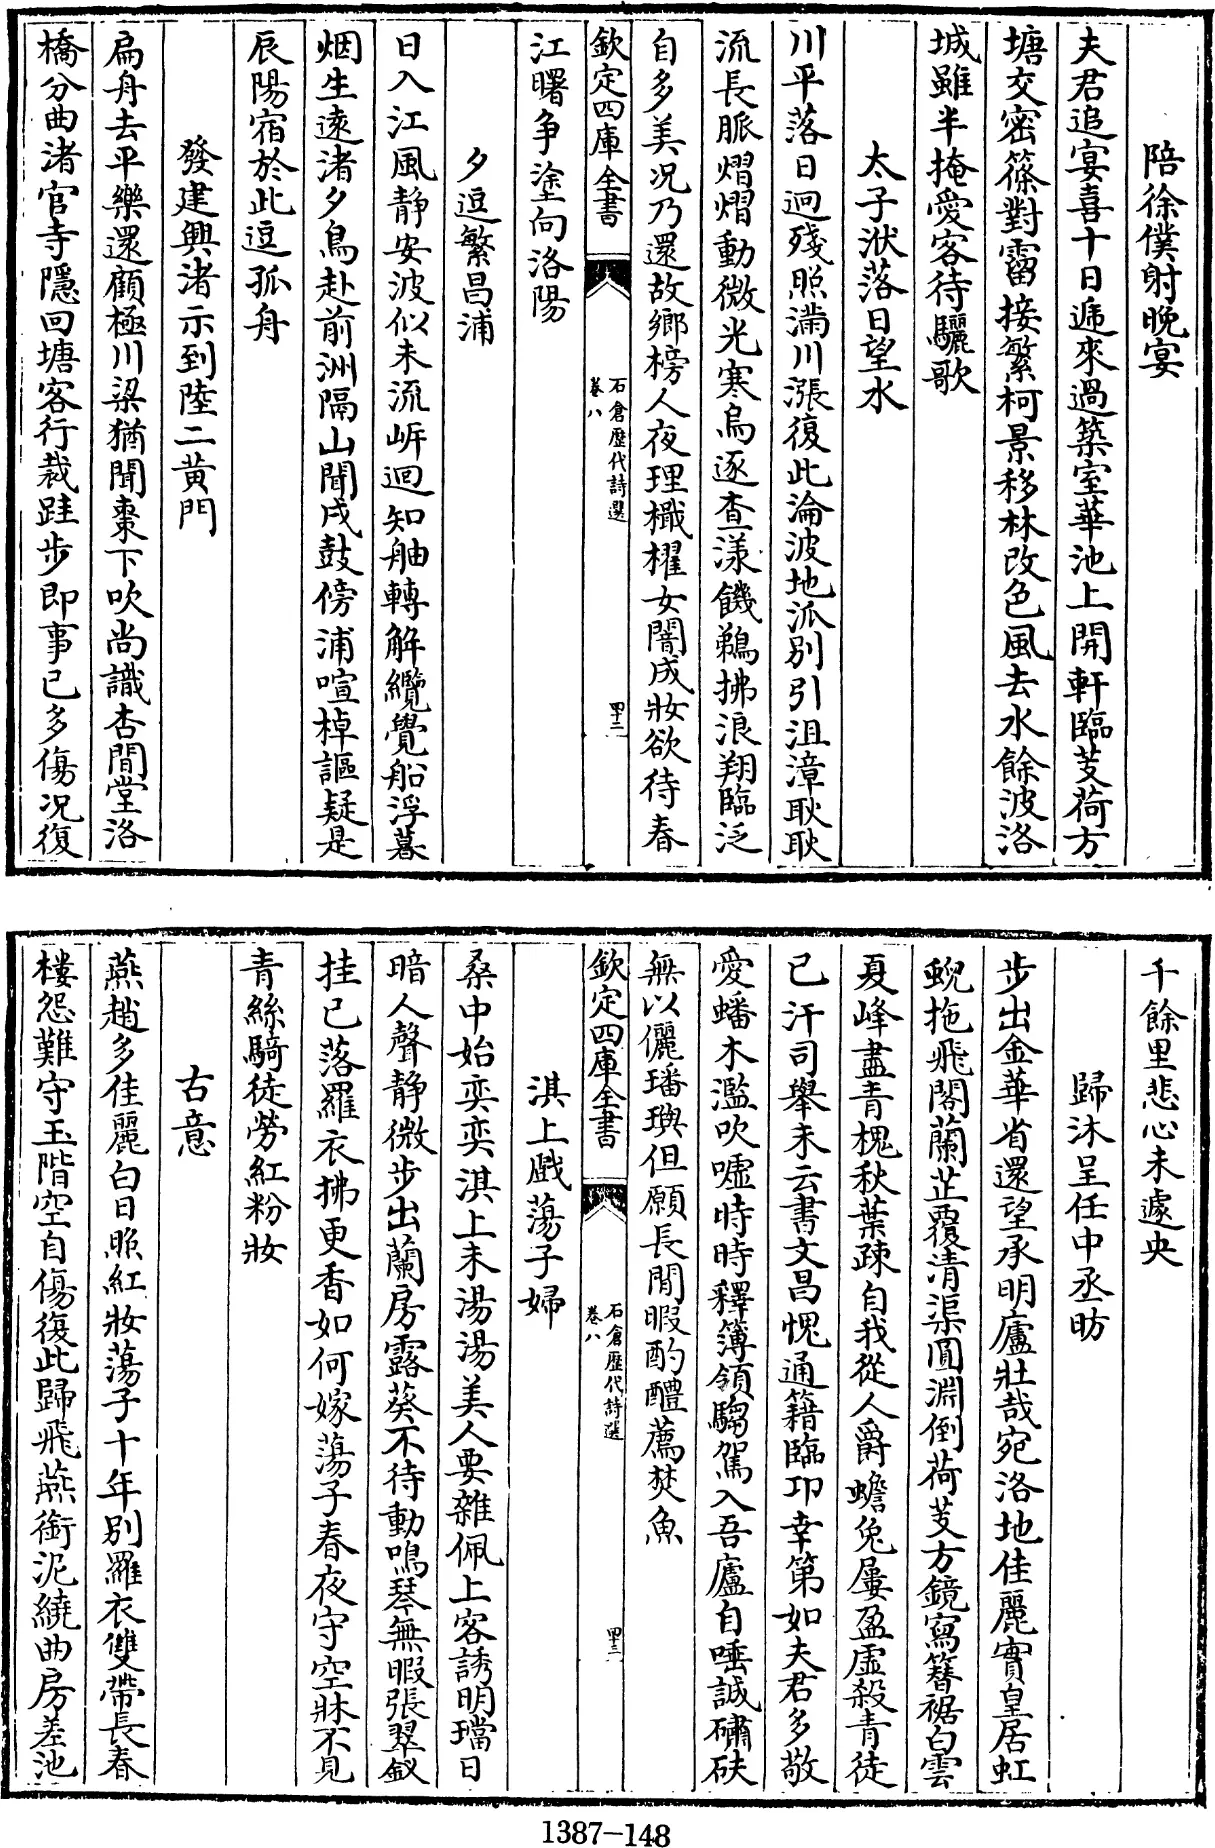 陪徐僕射晚宴
夫君追宴喜十日遞來過築室華池上開軒臨芰荷方
塘交密篠對霤接繁柯景移林改色風去水餘波洛
城雖半掩愛客待驪歌
太子洑落日望水
川平落日迥殘照滿川漲復此淪波地派別引沮漳耿耿
流長脈熠熠動微光寒烏逐查漾饑鵜拂浪翔臨泛
自多美况乃還故鄉榜人夜理檝櫂女闇成妝欲待春
欽定四庫全書
石倉歷代詩選
卷八
四十二
江曙争塗向洛陽
夕逗繁昌浦
日入江風静安波似未流岍迴知舳轉解纜覺船浮暮
烟生遠渚夕鳥赴前洲隔山聞戍鼓傍浦喧棹謳疑是
辰陽宿於此逗孤舟
發建興渚示到陸二黄門
扁舟去平樂還顧極川梁猶聞棗下吹尚識杏間堂洛
橋分曲渚官寺隱回塘客行裁跬步即事已多傷况復
千餘里悲心未遽央
歸沐呈任中丞昉
步出金華省還望承明廬壯哉宛洛地佳麗實皇居虹
蜺拖飛閣蘭芷覆清渠圓淵倒荷芰方鏡寫簪裾白雲
夏峰盡青槐秋葉疎自我從人爵蟾兔屢盈虛殺青徒
已汗司舉未云書文昌愧通籍臨卭幸第如夫君多敬
愛蟠木濫吹嘘時時釋簿領騶駕入吾廬自唾誠磠砆
無以儷璠璵但願長閒暇酌醴薦焚魚
欽定四庫全書
石倉歷代詩選
卷八
四十三
淇上戲蕩子婦
桑中始奕奕淇上未湯湯美人要雜佩上客誘明璫日
暗人聲静微步出蘭房露葵不待動鳴琴無暇張翠釵
挂已落羅衣拂更香如何嫁蕩子春夜守空牀不見
青絲騎徒勞紅粉妝
古意
燕趙多佳麗白日照紅妝蕩子十年别羅衣雙帶長春
樓怨難守玉階空自傷復此歸飛燕銜泥繞曲房差池
1387-148